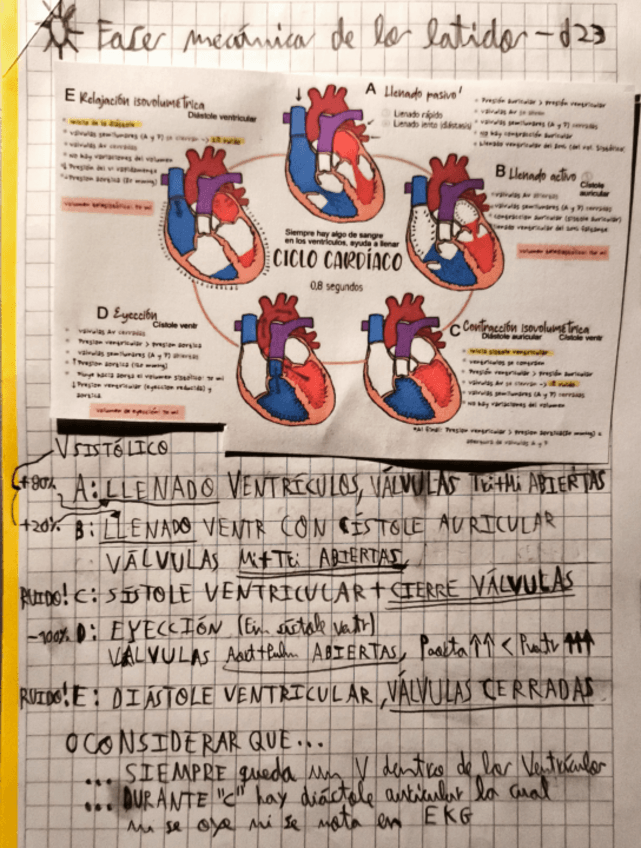 Fases mecánica de los latidos - d23
E Relajación isovolumétrica
Diástole ventricular
Inicio de la diástole
Válvulas semilunares (A y P) se cierran -> 2º ruido
Válvulas AV cerradas
No hay variaciones del volumen
Presión del VI rápidamente
Presión aórtica (80 mmHg)
Volumen telesistólico: 70 ml
A Llenado pasivo
Llenado rápido
Llenado lento (diástasis)
Presión auricular > presión ventricular
Válvulas AV se abren
Válvulas semilunares (A y P) cerradas
No hay contracción auricular
B Llenado activo
Cistole
auricular
Válvulas AV abiertas
Válvulas semilunares (A y P) cerradas
Contracción auricular (sístole auricular)
Siempre hay algo de sangre
en los ventrículos, ayuda a llenar
CICLO CARDÍACO
0,8 segundos
D Eyección
Cistole ventr
Válvulas AV cerradas
Presión ventricular > Presión aórtica
Válvulas semilunares (A y P) abiertas
↑ Presión aórtica (120 mmHg)
Fluye hacia aorta el volumen sistólico: 70 ml
↓ Presión ventricular (eyección reducida) y
aórtica
Volumen de eyección: 70 ml
C Contracción isovolumétrica
Diástole auricular Cistole ventr
Inicia sístole ventricular
Ventrículos se contraen
Presión ventricular > presión auricular
Válvulas AV se cierran -> 1º ruido
Válvulas semilunares (A y P) cerradas
No hay variaciones del volumen
*Al final: Presión ventricular > presión aórtica (80 mmHg) =
apertura de válvulas A y P
VSISTÓLICO
+80% A: LLENADO VENTRÍCULOS, VÁLVULAS Tri+Mi ABIERTAS
+20% B: LLENADO VENTR CON CÍSTOLE AURICULAR
VÁLVULAS Mi+Tri ABIERTAS
RUIDO! C: SÍSTOLE VENTRICULAR + CIERRE VÁLVULAS
~100% D: EYECCIÓN (En sístole ventr)
VÁLVULAS Aort+Pulm ABIERTAS, Paorta ↑↑ < Pventr ↑↑↑
RUIDO! E: DIÁSTOLE VENTRICULAR, VÁLVULAS CERRADAS
O CONSIDERAR QUE...
... SIEMPRE queda un V dentro de los Ventrículos
... DURANTE "C" hay diástole auricular la cual
ni se oye ni se nota en EKG